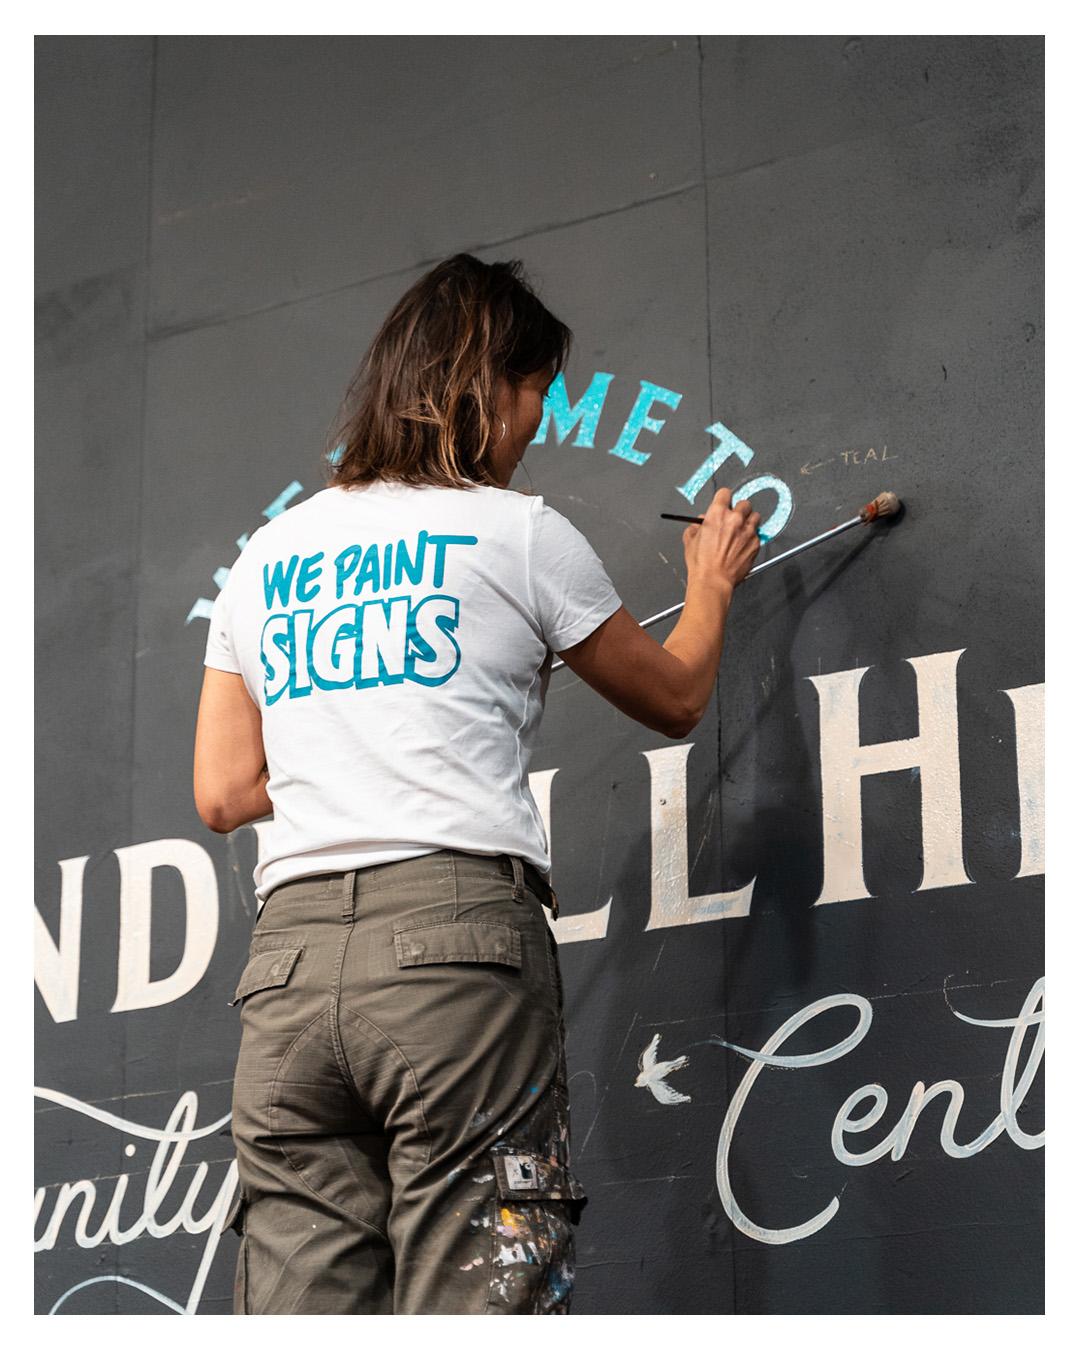 ME TO
← TEAL
WE PAINT
SIGNS
ND LL H
Cent